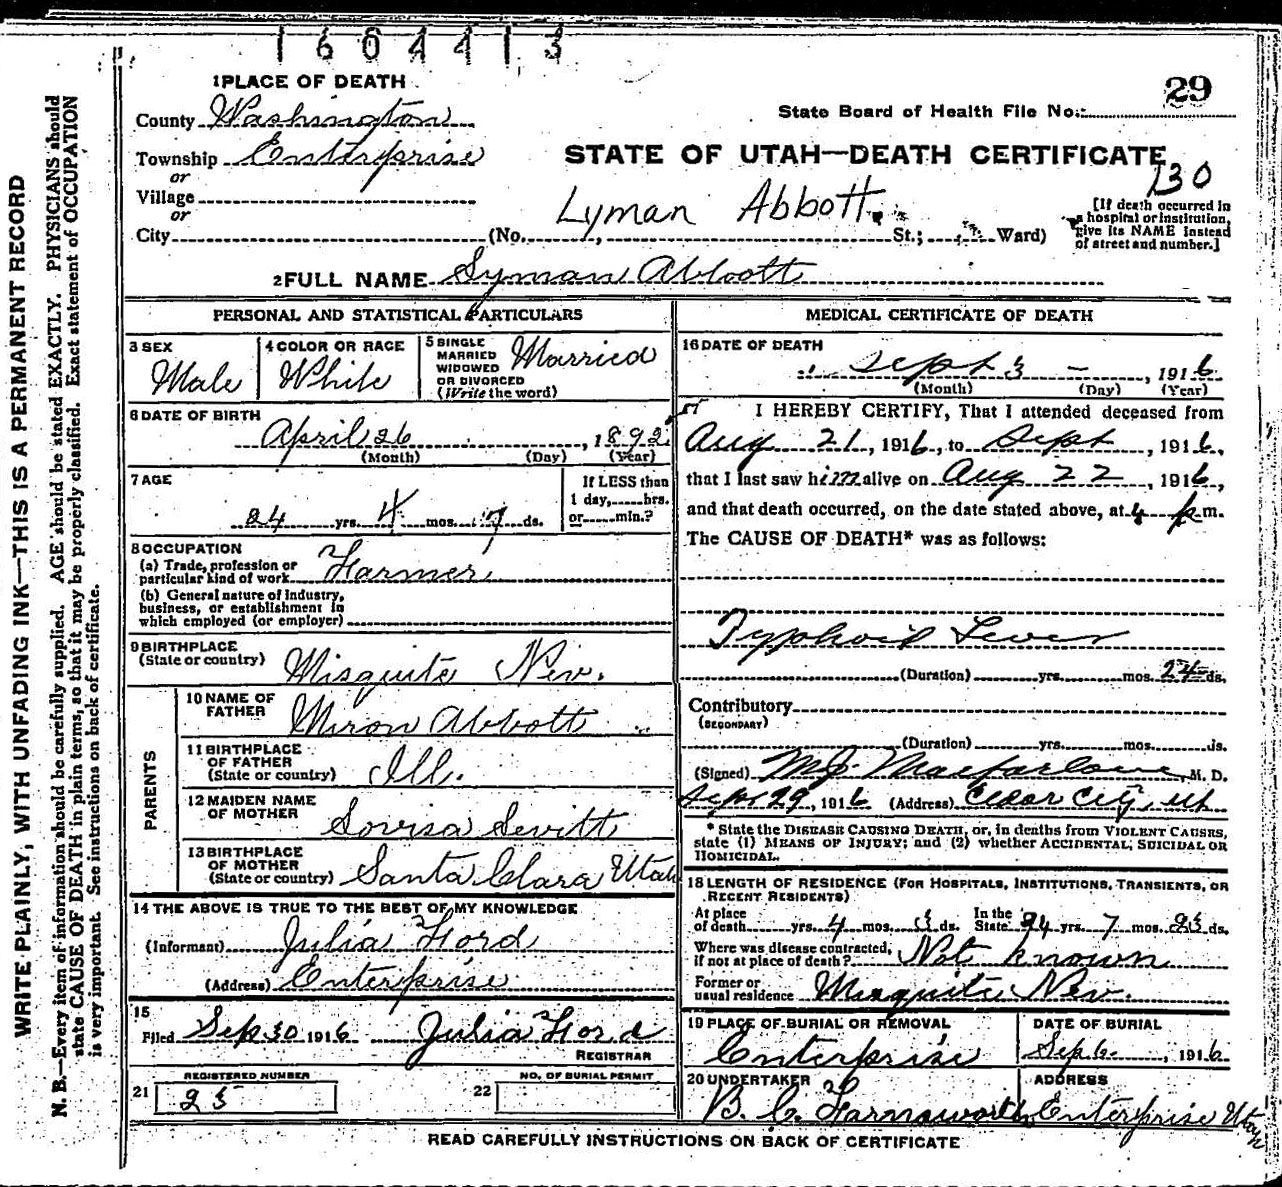 1604413
29
1 PLACE OF DEATH
State Board of Health File No.
County Washington
Township Enterprise
STATE OF UTAH—DEATH CERTIFICATE
130
or
Village
or
Lyman Abbott
[If death occurred in a hospital or institution, give its NAME instead of street and number.]
City (No. , St.; Ward)
2 FULL NAME Lyman Abbott
PERSONAL AND STATISTICAL PARTICULARS
3 SEX Male
4 COLOR OR RACE White
5 SINGLE MARRIED WIDOWED OR DIVORCED (Write the word) Married
6 DATE OF BIRTH
April 26 , 1892
(Month) (Day) (Year)
7 AGE
24 yrs. 4 mos. 7 ds.
If LESS than 1 day, hrs. or min.?
8 OCCUPATION
(a) Trade, profession or particular kind of work Farmer
(b) General nature of industry, business, or establishment in which employed (or employer)
9 BIRTHPLACE (State or country) Misquite Nev.
PARENTS
10 NAME OF FATHER Miron Abbott
11 BIRTHPLACE OF FATHER (State or country) Ill.
12 MAIDEN NAME OF MOTHER
13 BIRTHPLACE OF MOTHER (State or country) Santa Clara Utah
14 THE ABOVE IS TRUE TO THE BEST OF MY KNOWLEDGE
(Informant) Julia Hord
(Address) Enterprise
15
Filed Sep 30 1916 Julia Hord
REGISTRAR
21 REGISTERED NUMBER 25
22 NO. OF BURIAL PERMIT
MEDICAL CERTIFICATE OF DEATH
16 DATE OF DEATH
Sept 3 , 1916
(Month) (Day) (Year)
I HEREBY CERTIFY, That I attended deceased from
Aug 21, 1916, to Sept , 1916,
that I last saw him alive on Aug 22 , 1916,
and that death occurred, on the date stated above, at 4 p m.
The CAUSE OF DEATH* was as follows:
Typhoid Fever
(Duration) yrs. mos. 24 ds.
Contributory
(SECONDARY)
(Duration) yrs. mos. ds.
(Signed) M.J. Macfarlane, M. D.
Sept 29, 1916 (Address) Cedar City, Ut
* State the DISEASE CAUSING DEATH, or, in deaths from VIOLENT CAUSES, state (1) MEANS OF INJURY; and (2) whether ACCIDENTAL, SUICIDAL OR HOMICIDAL.
18 LENGTH OF RESIDENCE (FOR HOSPITALS, INSTITUTIONS, TRANSIENTS, OR RECENT RESIDENTS)
At place of death yrs. 4 mos. 3 ds. In the State 24 yrs. 7 mos. 23 ds.
Where was disease contracted, if not at place of death? Not known
Former or usual residence Misquite Nev.
19 PLACE OF BURIAL OR REMOVAL Enterprise
DATE OF BURIAL Sep 6 , 1916
20 UNDERTAKER B. C. Farnsworth
ADDRESS Enterprise Utah
READ CAREFULLY INSTRUCTIONS ON BACK OF CERTIFICATE
WRITE PLAINLY, WITH UNFADING INK—THIS IS A PERMANENT RECORD
N. B.—Every item of information should be carefully supplied. AGE should be stated EXACTLY. PHYSICIANS should
state CAUSE OF DEATH in plain terms, so that it may be properly classified. Exact statement of OCCUPATION
is very important. See instructions on back of certificate.